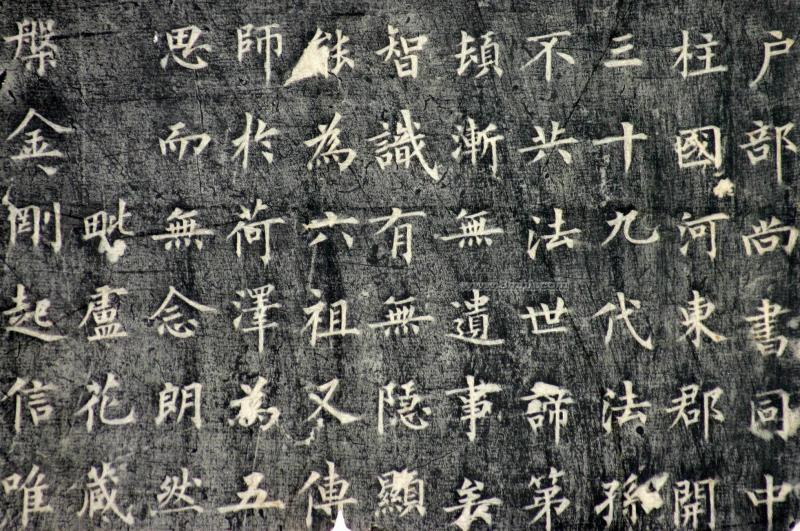 戶部尚書同中
柱國河東郡開
三十九代法孫
不共法世諦第
頓漸無遺事矣
智識有無隐顯
能為六祖又傳
師於荷澤為五
思而無念朗然
毗盧花藏
槃金剛起信唯